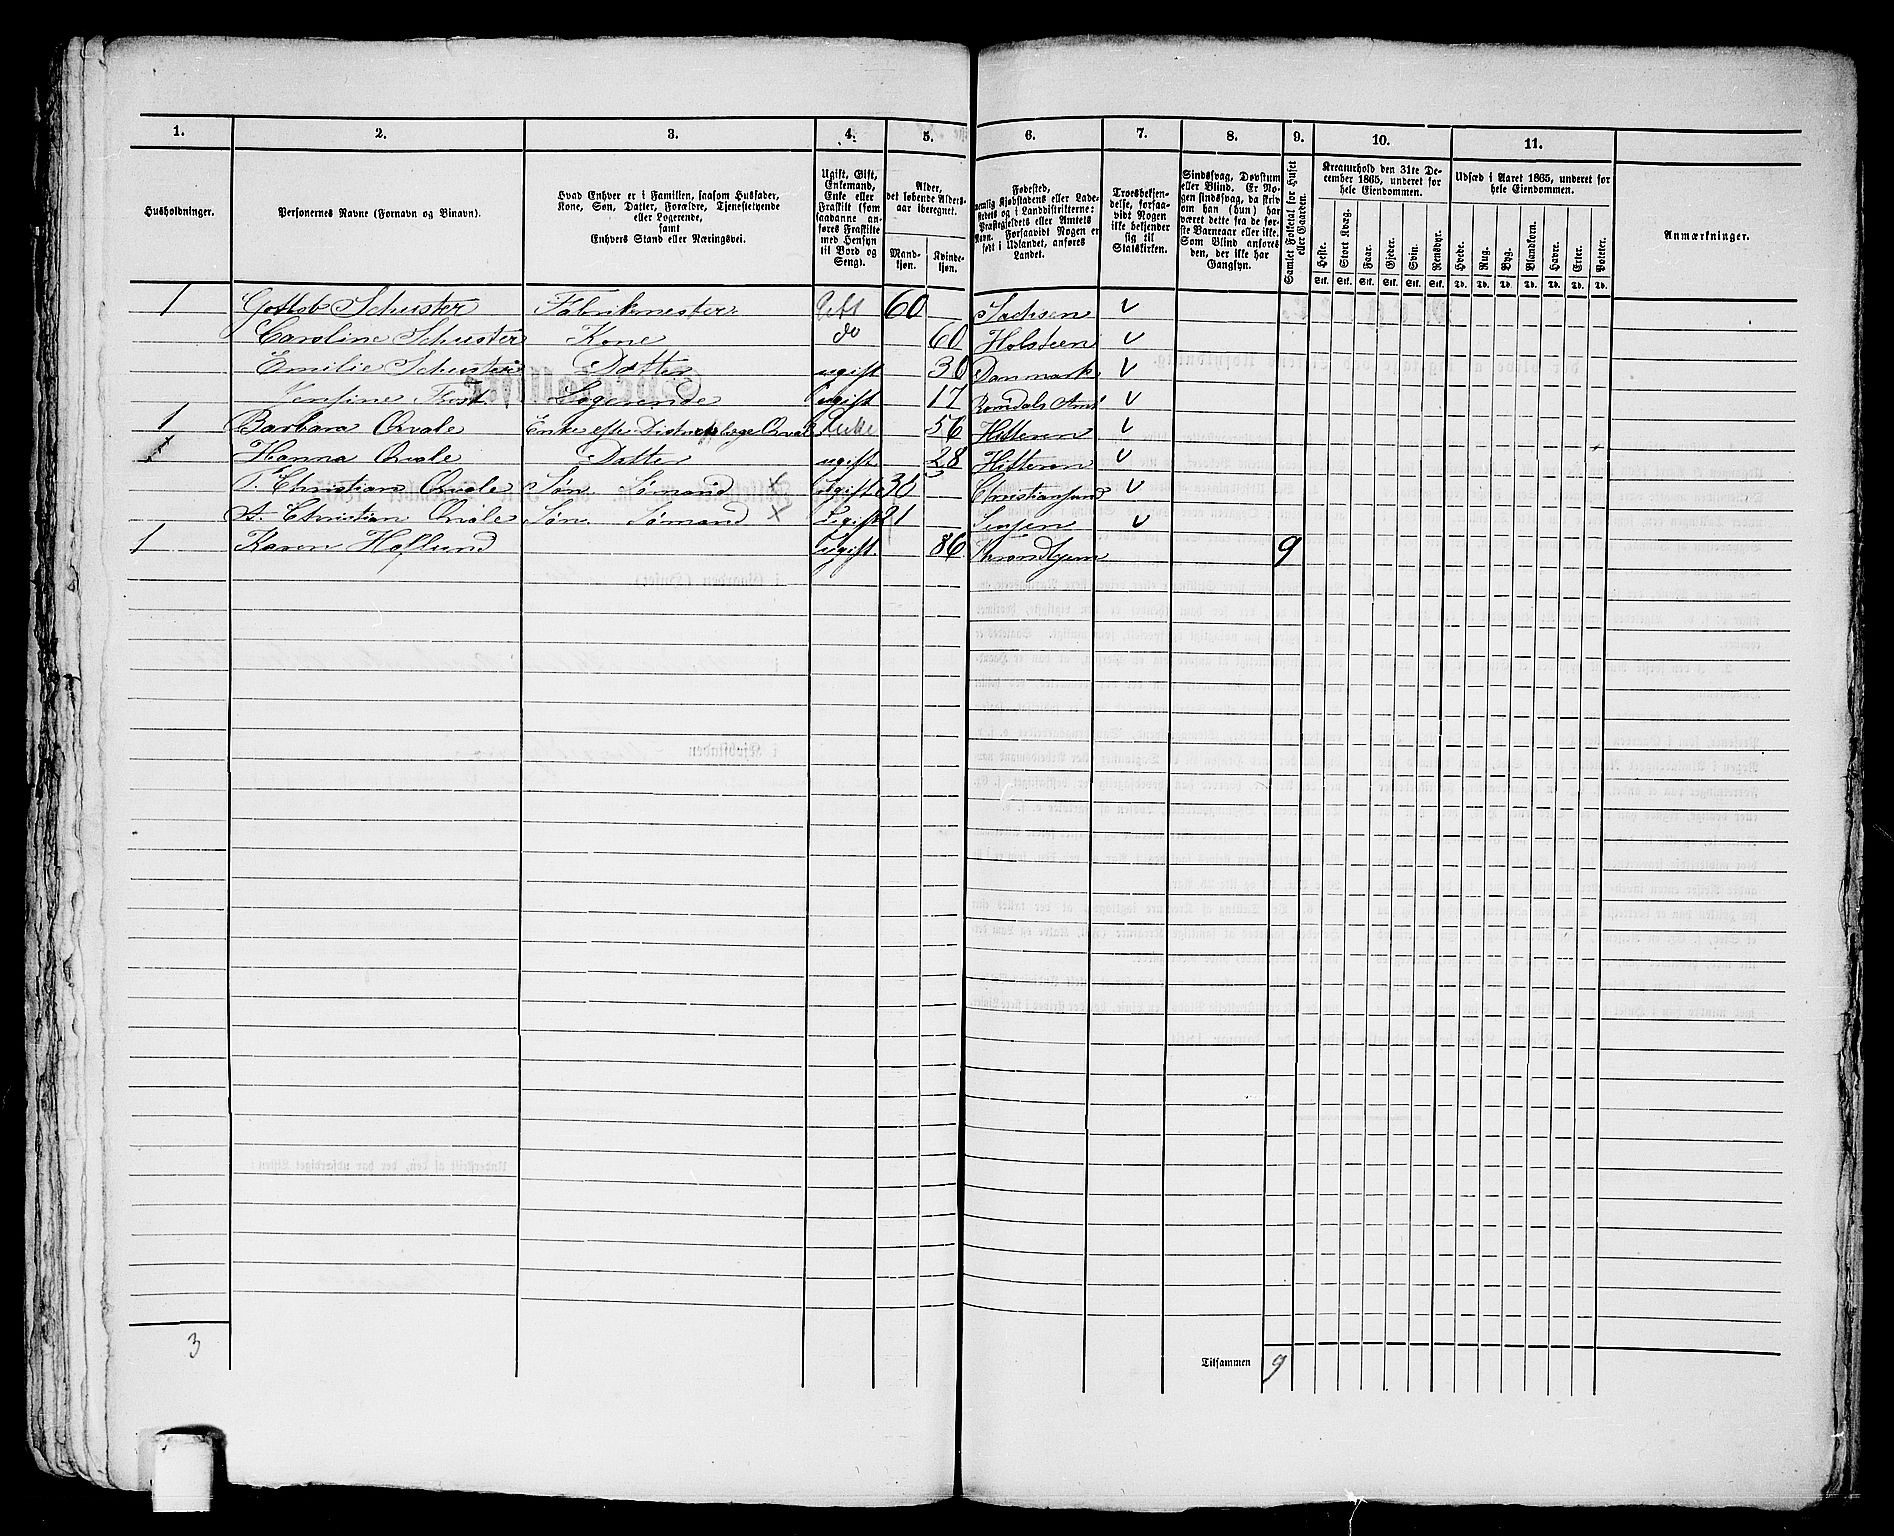 1. 2. 3. 4. 5. 6. 7. 8. 9. 10. 11.
Husholdninger.
Personernes Navne (Fornavn og Binavn).
Hvad Enhver er i Familien, saasom Husfader,
Kone, Søn, Datter, Forældre, Tjenestetyende
eller Logerende,
samt
Enhvers Stand eller Næringsvei.
Ugift, Gift,
Enkemand,
Enke eller
Fraskilt (som
saadanne an-
føres Fraskilte
med Hensyn
til Bord og
Seng).
Alder,
det løbende Alders-
aar iberegnet.
Mand-
kjøn.
Kvinde-
kjøn.
Fødested,
nemlig Kjøbstadens eller Lade-
stedets og i Landdistrikterne:
Præstegjeldets eller Amtets
Navn. Forsaavidt Nogen er
født i Udlandet, anføres
Landet.
Troesbekjen-
delse, forsaa-
vidt Nogen
ikke bekjender
sig til
Statskirken.
Sindssvag, Døvstum
eller Blind. Er No-
gen sindssvag, da skriv
om han (hun) har
været dette fra de før-
ste Barneaar eller ikke.
Som Blind anføres
den, der ikke har
Gangsyn.
Samlet Folketal for Huset
eller Gaarden.
Kreaturhold den 31te De-
cember 1865, underet for
hele Eiendommen.
Heste. Stort Kvæg. Faar. Gjeder. Svin. Rensdyr.
Stk. Stk. Stk. Stk. Stk. Stk.
Udsæd i Aaret 1865, underet for
hele Eiendommen.
Hvede. Rug. Byg. Blandkorn. Havre. Erter. Poteter.
Td. Td. Td. Td. Td. Td. Td.
Anmærkninger.
1 Gottlob Schuster Fabrikmester Gift 60 Sachsen v
Caroline Schuster Kone do 60 Holsteen v
Emilie Schuster Datter ugift 30 Danmark v
Jensine Frost Logerende ugift 17 Romsdals Amt v
1 Barbara Qvale Enke efter Distriktslæge Qvale Enke 56 Hitteren v
Hanna Qvale Datter ugift 28 Hitteren v
P. Christian Qvale Søn. Sømand x Ugift 30 Christiansund v
A. Christian Qvale Søn. Sømand x Ugift 21 Senjen v
1 Karen Hoflund Ugift 86 Throndhjem 9
3
Tilsammen 9